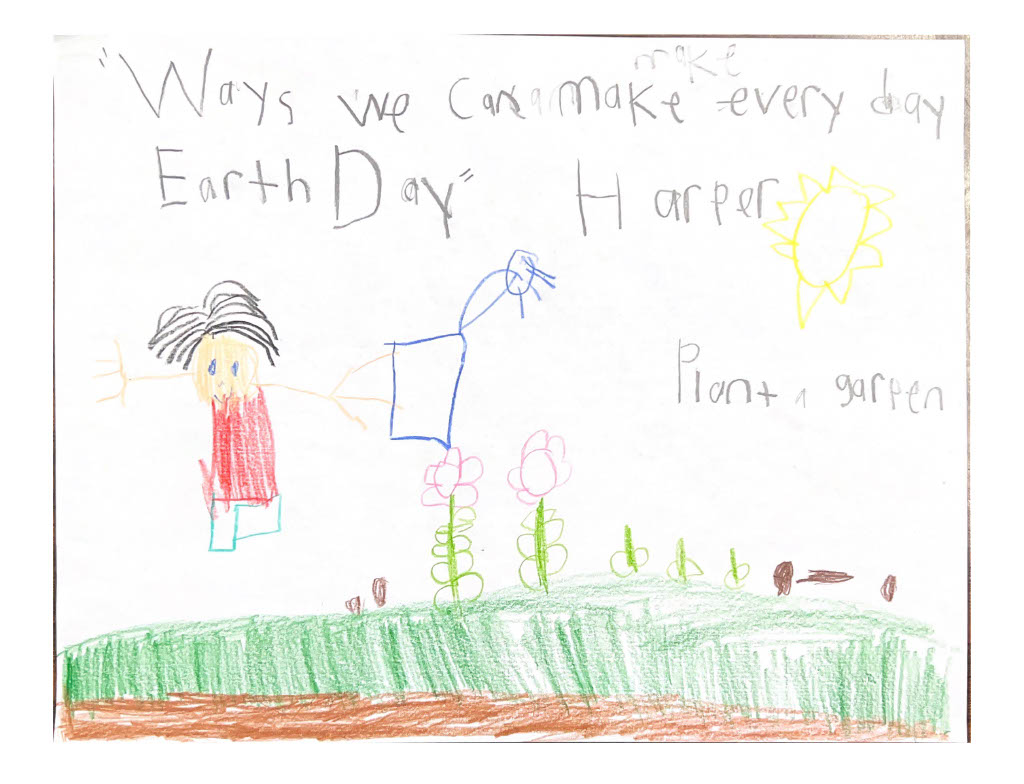 make
"Ways we Can make every day
Earth Day" Harper
Plant a garpen